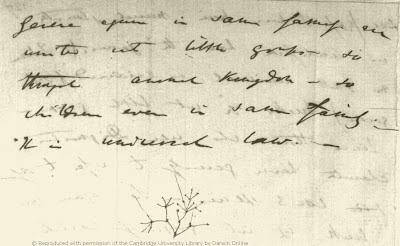 Genera again in same family are
united into little groups – so
through animal Kingdom – so
children even in same family.
It is universal law. –
© Reproduced with permission of the Cambridge University Library by Darwin Online